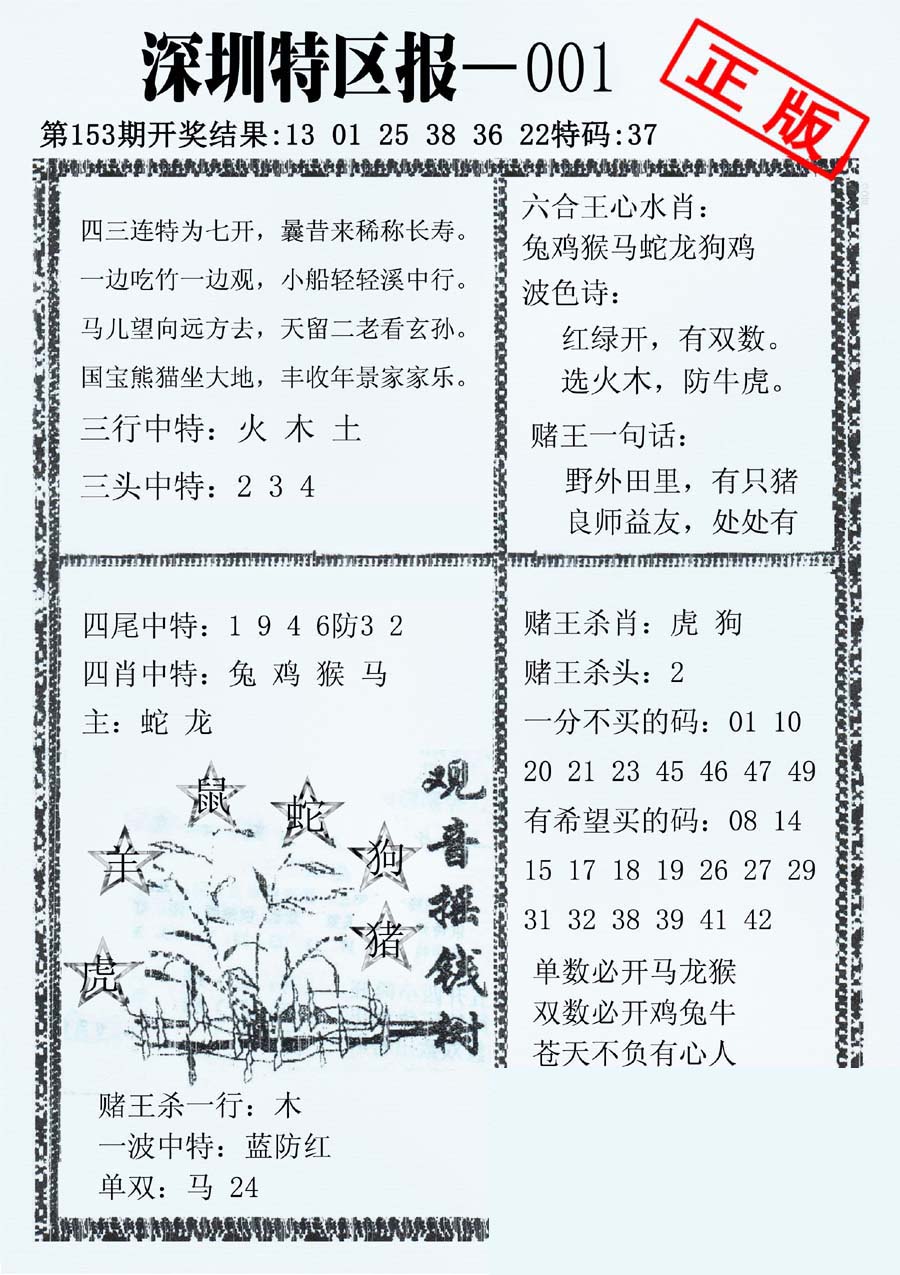 深圳特区报—001
正版
第153期开奖结果:13 01 25 38 36 22特码:37
四三连特为七开，曩昔来稀称长寿。
一边吃竹一边观，小船轻轻溪中行。
马儿望向远方去，天留二老看玄孙。
国宝熊猫坐大地，丰收年景家家乐。
三行中特：火 木 土
三头中特：2 3 4
六合王心水肖：
兔鸡猴马蛇龙狗鸡
波色诗：
红绿开，有双数。
选火木，防牛虎。
赌王一句话：
野外田里，有只猪
良师益友，处处有
四尾中特：1 9 4 6防3 2
四肖中特：兔 鸡 猴 马
主：蛇 龙
鼠
蛇
羊
狗
猪
虎
观音摇钱树
赌王杀一行：木
一波中特：蓝防红
单双：马 24
赌王杀肖：虎 狗
赌王杀头：2
一分不买的码：01 10
20 21 23 45 46 47 49
有希望买的码：08 14
15 17 18 19 26 27 29
31 32 38 39 41 42
单数必开马龙猴
双数必开鸡兔牛
苍天不负有心人